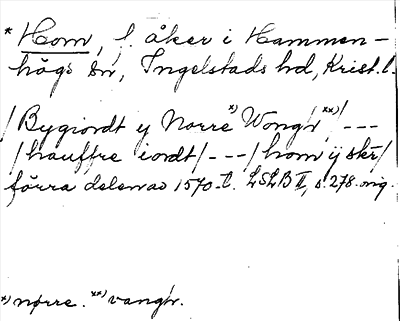 * Hom, f. åker i Hammen-
högs sn, Ingelstads hd, Krist. l.
/Bygiordt y Norre x) Wongh xx)/ ---
/hauffre iordt/ --- /hom ÿ skr/
förra delen av 1570-t. LSLB II, s. 278. orig.
x) nørre. xx) vangh.